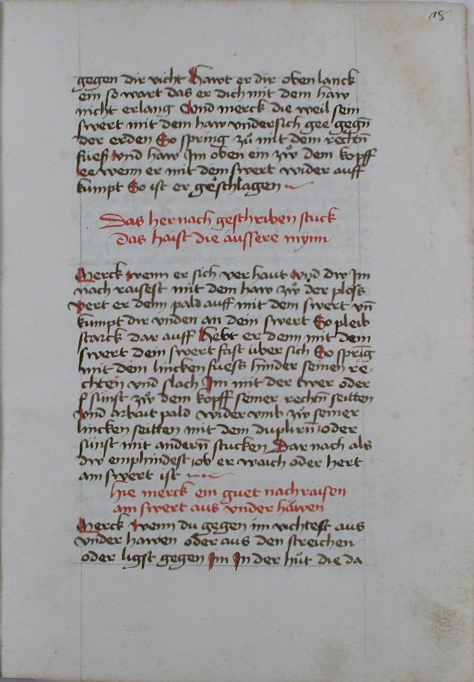 gegen dir vicht Hawt er dir oben lanck
ein so wart das er dich mit dem haw
nicht erlang Vnd merck die weil sein
swert mit dem haw vndersich gee gegñ
der erden So spring zů mit dem rechtñ
fuess vnd haw Im oben ein zẘ dem kopff
ee wenn er mit dem swert wider auff
kumpt So ist er geschlagen
Das her nach geschriben stuck
das haist die aussere mynn
Merck wenn er sich ver haut vnd dw Im
nach raisest mit dem haw zẘ der plöss
vert er denn pald auff mit dem swert vñ
kumpt dir vnden an dein swert So pleib
starck dar auff Hebt er denn mit dem
swert dein swert fast über sich So spring
mit dem lincken fuess hinder seinen re
chten vnd slach Im mit der twer oder
sünst zẘ dem kopff seiner rechtñ seitten
vnd arbait pald wider vmb zẘ seiner
lincken seitten mit dem duplirñ oder
sünst mit anderñ stucken Dar nach als
dw emphindest ob er waich oder hert
am swert ist
hie merck ein guet nachraisen
am swert aus vnder häwen
Merck wenn du gegen im vichtest aus
vnder hawen oder aus den streichen
oder ligst gegen Im In der hůt die da